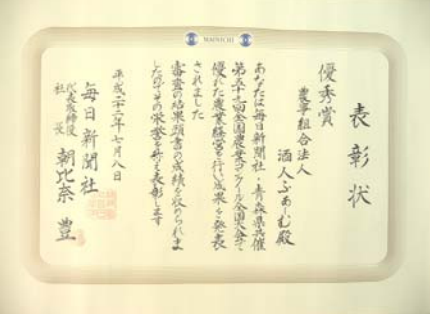 MAINICHI
表彰状
優秀賞
農事組合法人
酒人ふぁーむ殿
あなたは毎日新聞社・青森県共催
全国農業コンクール全国大会で
優れた農業経営を行い成果を発表
されました
審査の結果頭書の成績を収められま
したのでその栄誉を称え表彰します
平成二十二年七月八日
毎日新聞社
代表取締役
社長
朝比奈豊